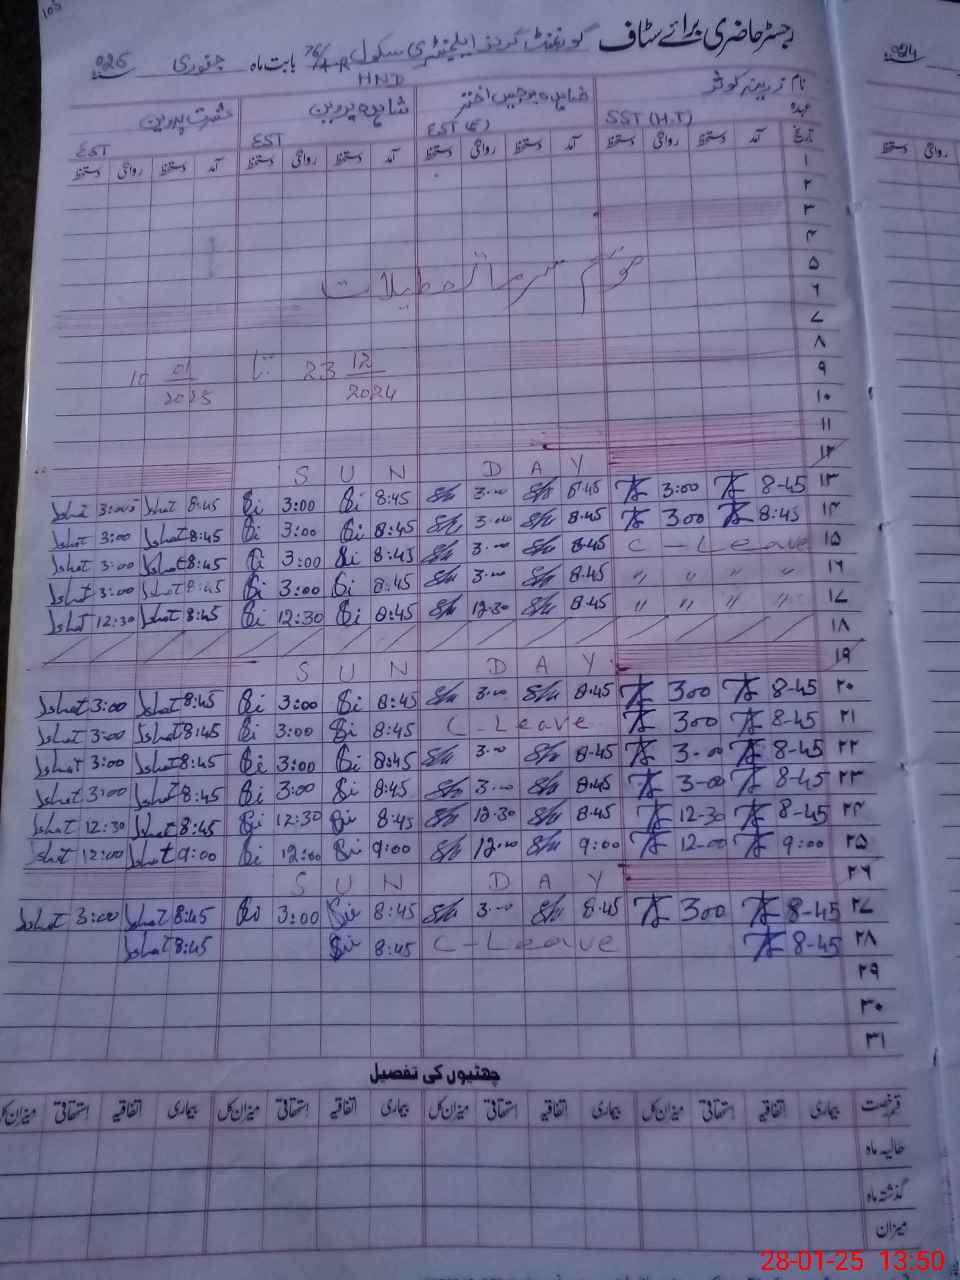 رجسٹر حاضری برائے سٹاف گورنمنٹ گرلز ایلیمنٹری سکول 76/4-R بابت ماہ جنوری 025
HND
نام زرینہ کوثر شاہدہ برجیس اختر شاہدہ پروین عشرت پروین
عہدہ SST (H.T) EST (E) EST EST
تاریخ آمد دستخط روانگی دستخط آمد دستخط روانگی دستخط آمد دستخط روانگی دستخط آمد دستخط روانگی دستخط
۱
۲
۳
۴
۵
موسم سرما تعطیلات
۶
۷
۸
۹
23 12/2024 تا 10 01/2025
۱۰
۱۱
۱۲
S U N D A Y
Ishat 3:00 Ishat 8:45 3:00 8:45 3.00 8.45 3:00 8-45 ۱۳
Ishat 3:00 Ishat 8:45 3:00 8:45 3.00 8.45 300 8:45 ۱۴
Ishat 3:00 Ishat 8:45 3:00 8:45 3.00 8.45 C - Leave ۱۵
Ishat 3:00 Ishat 8:45 3:00 8:45 3.00 8.45 " " " " ۱۶
Ishat 12:30 Ishat 8:45 12:30 8:45 12.30 8.45 " " " " ۱۷
۱۸
S U N D A Y ۱۹
Ishat 3:00 Ishat 8:45 3:00 8:45 3.00 8.45 300 8-45 ۲۰
Ishat 3:00 Ishat 8:45 3:00 8:45 C - Leave 300 8-45 ۲۱
Ishat 3:00 Ishat 8:45 3:00 8:45 3.00 8.45 3-00 8-45 ۲۲
Ishat 3:00 Ishat 8:45 3:00 8:45 3.00 8.45 3-00 8-45 ۲۳
Ishat 12:30 Ishat 8:45 12:30 8:45 12.30 8.45 12-30 8-45 ۲۴
Ishat 12:00 Ishat 9:00 12:00 9:00 12.00 9:00 12-00 9:00 ۲۵
S U N D A Y ۲۶
Ishat 3:00 Ishat 8:45 3:00 8:45 3.00 8.45 300 8-45 ۲۷
Ishat 8:45 8:45 C - Leave 8-45 ۲۸
۲۹
۳۰
۳۱
چھٹیوں کی تفصیل
قسم رخصت بیماری اتفاقیہ استحقاقی میزان کل بیماری اتفاقیہ استحقاقی میزان کل بیماری اتفاقیہ استحقاقی میزان کل بیماری اتفاقیہ استحقاقی میزان کل
حالیہ ماہ
گذشتہ ماہ
میزان
024
روانگی دستخط
28-01-25 13:50